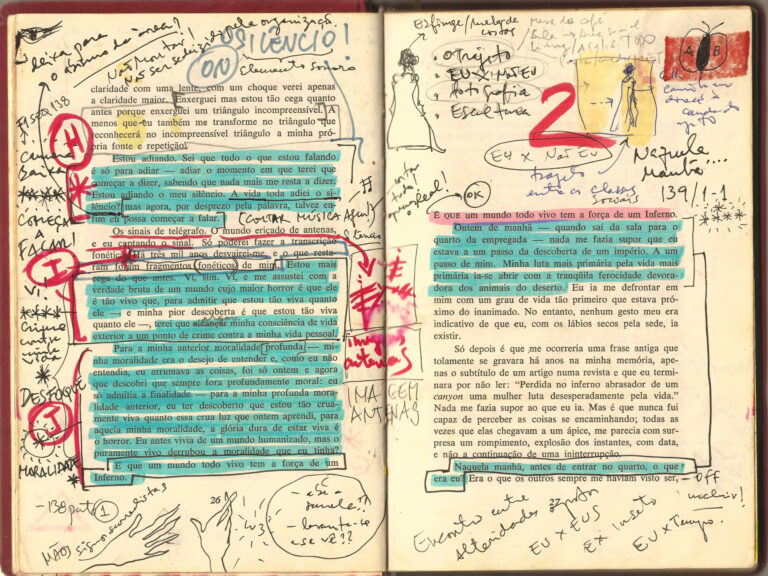 deixa para
o ânimo da área?
Não montar!
Não ser seduzido pela organização
SILÊNCIO!
ON
elemento sonoro
claridade com uma lente, com um choque verei apenas
a claridade maior. Enxerguei mas estou tão cega quanto
antes porque enxerguei um triângulo incompreensível. A
menos que eu também me transforme no triângulo que
reconhecerá no incompreensível triângulo a minha pró-
pria fonte e repetição.
Estou adiando. Sei que tudo o que estou falando
é só para adiar — adiar o momento em que terei que
começar a dizer, sabendo que nada mais me resta a dizer.
Estou adiando o meu silêncio. A vida toda adiei o silên-
cio? mas agora, por desprezo pela palavra, talvez en-
fim eu possa começar a falar.
(CORTAR MÚSICA AQUI)
Os sinais de telégrafo. O mundo eriçado de antenas,
e eu cantando o sinal. Só poderei fazer a transcrição
fonética. Há três mil anos desvairei-me, e o que resta-
ram foram fragmentos fonéticos de mim. Estou mais
cega do que antes. Vi, sim. Vi, e me assustei com a
verdade bruta de um mundo cujo maior horror é que ele
é tão vivo que, para admitir que estou tão viva quanto
ele — e minha pior descoberta é que estou tão viva
quanto ele —, terei que alçar minha consciência de vida
exterior a um ponto de crime contra a minha vida pessoal.
Para a minha anterior moralidade profunda — mi-
nha moralidade era o desejo de entender e, como eu não
entendia, eu arrumava as coisas, foi só ontem e agora
que descobri que sempre fora profundamente moral: eu
só admitia a finalidade — para a minha profunda mora-
lidade anterior, eu ter descoberto que estou tão crua-
mente viva quanto essa crua luz que ontem aprendi, para
aquela minha moralidade, a glória dura de estar viva é
o horror. Eu antes vivia de um mundo humanizado, mas o
puramente vivo derrubou a moralidade que eu tinha?
É que um mundo todo vivo tem a força de um
Inferno.
H
I
J
COMEÇA
A
FALAR!
VI,
DESFOQUE
MORALIDADE
Silêncio
imagens
antenas
IMAGEM
ANTENAS
MÃOS
Esfinge/Mulher de
costas
• O trajeto
• EU X NÃO EU
• fotografia
• Escultura
A B
2
EU X NÃO EU
trajeto
entre as classes
sociais
Naquela
Manhã....
139/1-1
OK
É que um mundo todo vivo tem a força de um Inferno.
Ontem de manhã — quando saí da sala para o
quarto da empregada — nada me fazia supor que eu
estava a um passo da descoberta de um império. A um
passo de mim. Minha luta mais primária pela vida mais
primária ia-se abrir com a tranqüila ferocidade devora-
dora dos animais do deserto. Eu ia me defrontar em
mim com um grau de vida tão primeiro que estava pró-
ximo do inanimado. No entanto, nenhum gesto meu era
indicativo de que eu, com os lábios secos pela sede, ia
existir.
Só depois é que me ocorreria uma frase antiga que
tolamente se gravara há anos na minha memória, ape-
nas o subtítulo de um artigo numa revista e que eu termi-
nara por não ler: “Perdida no inferno abrasador de um
canyon uma mulher luta desesperadamente pela vida.”
Nada me fazia supor ao que eu ia. Mas é que nunca fui
capaz de perceber as coisas se encaminhando; todas as
vezes que elas chegavam a um ápice, me parecia com sur-
presa um rompimento, explosão dos instantes, com data,
e não a continuação de uma ininterrupção.
Naquela manhã, antes de entrar no quarto, o que
era eu? Era o que os outros sempre me haviam visto ser,
OFF
Encontro entre
alteridades
EU X EUS
E X inseto
EU X Tempo.